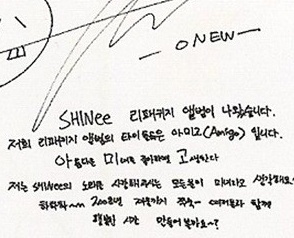 — ONEW —
SHINee 리패키지 앨범이 나왔습니다.
저희 리패키지 앨범의 타이틀은 아미고(Amigo) 입니다.
아름다운 미녀를 좋아하면 고생한다
저는 SHINee의 노래를 사랑해주시는 모든분이 미녀라고 생각해요~
2008년 겨울까지 쭉~ 여러분과 함께
행복한 시간 만들어볼까요~?